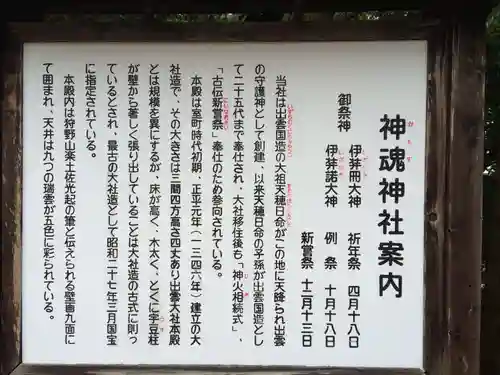 神魂神社案内
かもす
御祭神
伊弉冊大神 祈年祭 四月十八日
いざなみ
伊弉諾大神 例祭 十月十八日
いざなぎ
新嘗祭 十二月十三日
当社は出雲国造の大祖天穂日命がこの地に天降られ出雲
の守護神として創建、以来天穂日命の子孫が出雲国造とし
て二十五代まで奉仕され、大社移住後も「神火相続式」、
「古伝新嘗祭」奉仕のため参向されている。
本殿は室町時代初期・正平元年(一三四六年)建立の大
社造で、その大きさは三間四方高さ四丈あり出雲大社本殿
とは規模を異にするが、床が高く、木太く、とくに宇豆柱
が壁から著しく張り出していることは大社造の古式に則っ
ているとされ、最古の大社造として昭和二十七年三月国宝
に指定されている。
本殿内は狩野山楽土佐光起の筆と伝えられる壁画九面に
て囲まれ、天井は九つの瑞雲が五色に彩られている。